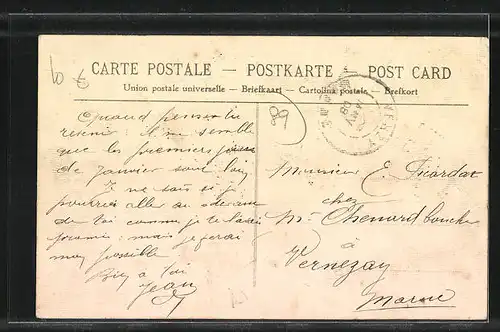 CARTE POSTALE — POSTKARTE — POST CARD
Union postale universelle — Briefkaart — Cartolina postale — Brefkort
Quand penses tu
revenir : Il me semble
que les premiers jours
de Janvier sont loin
Je ne sais si je
pourrai aller au devant
de toi comme je te l'avais
promis : mais je ferai
mon possible
Bien à toi
Jean
89
Monsieur E. Picardat
chez
Mr Chenard
à
Vernezay
Marne